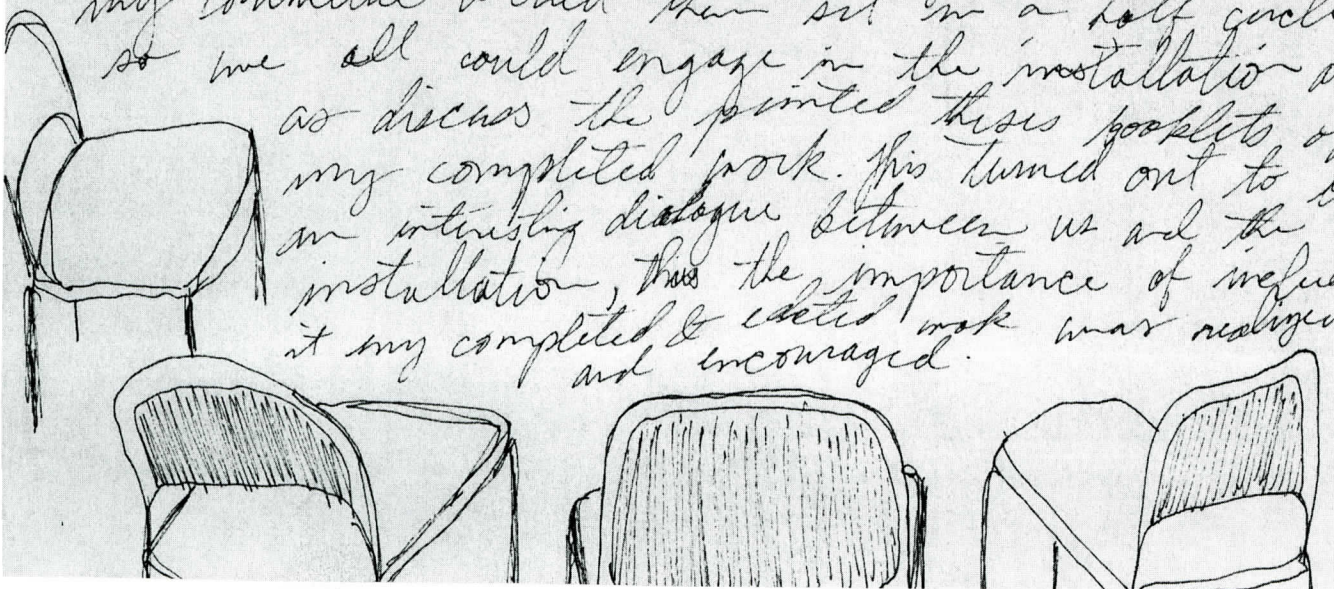 my committee & had them sit in a half circl
so we all could engage in the installation a
as discuss the printed thesis booklets o
my completed work. This turned out to b
an interesting dialogue between us and the
installation, thus the importance of inclu
it my completed & edited work was realize
and encouraged.